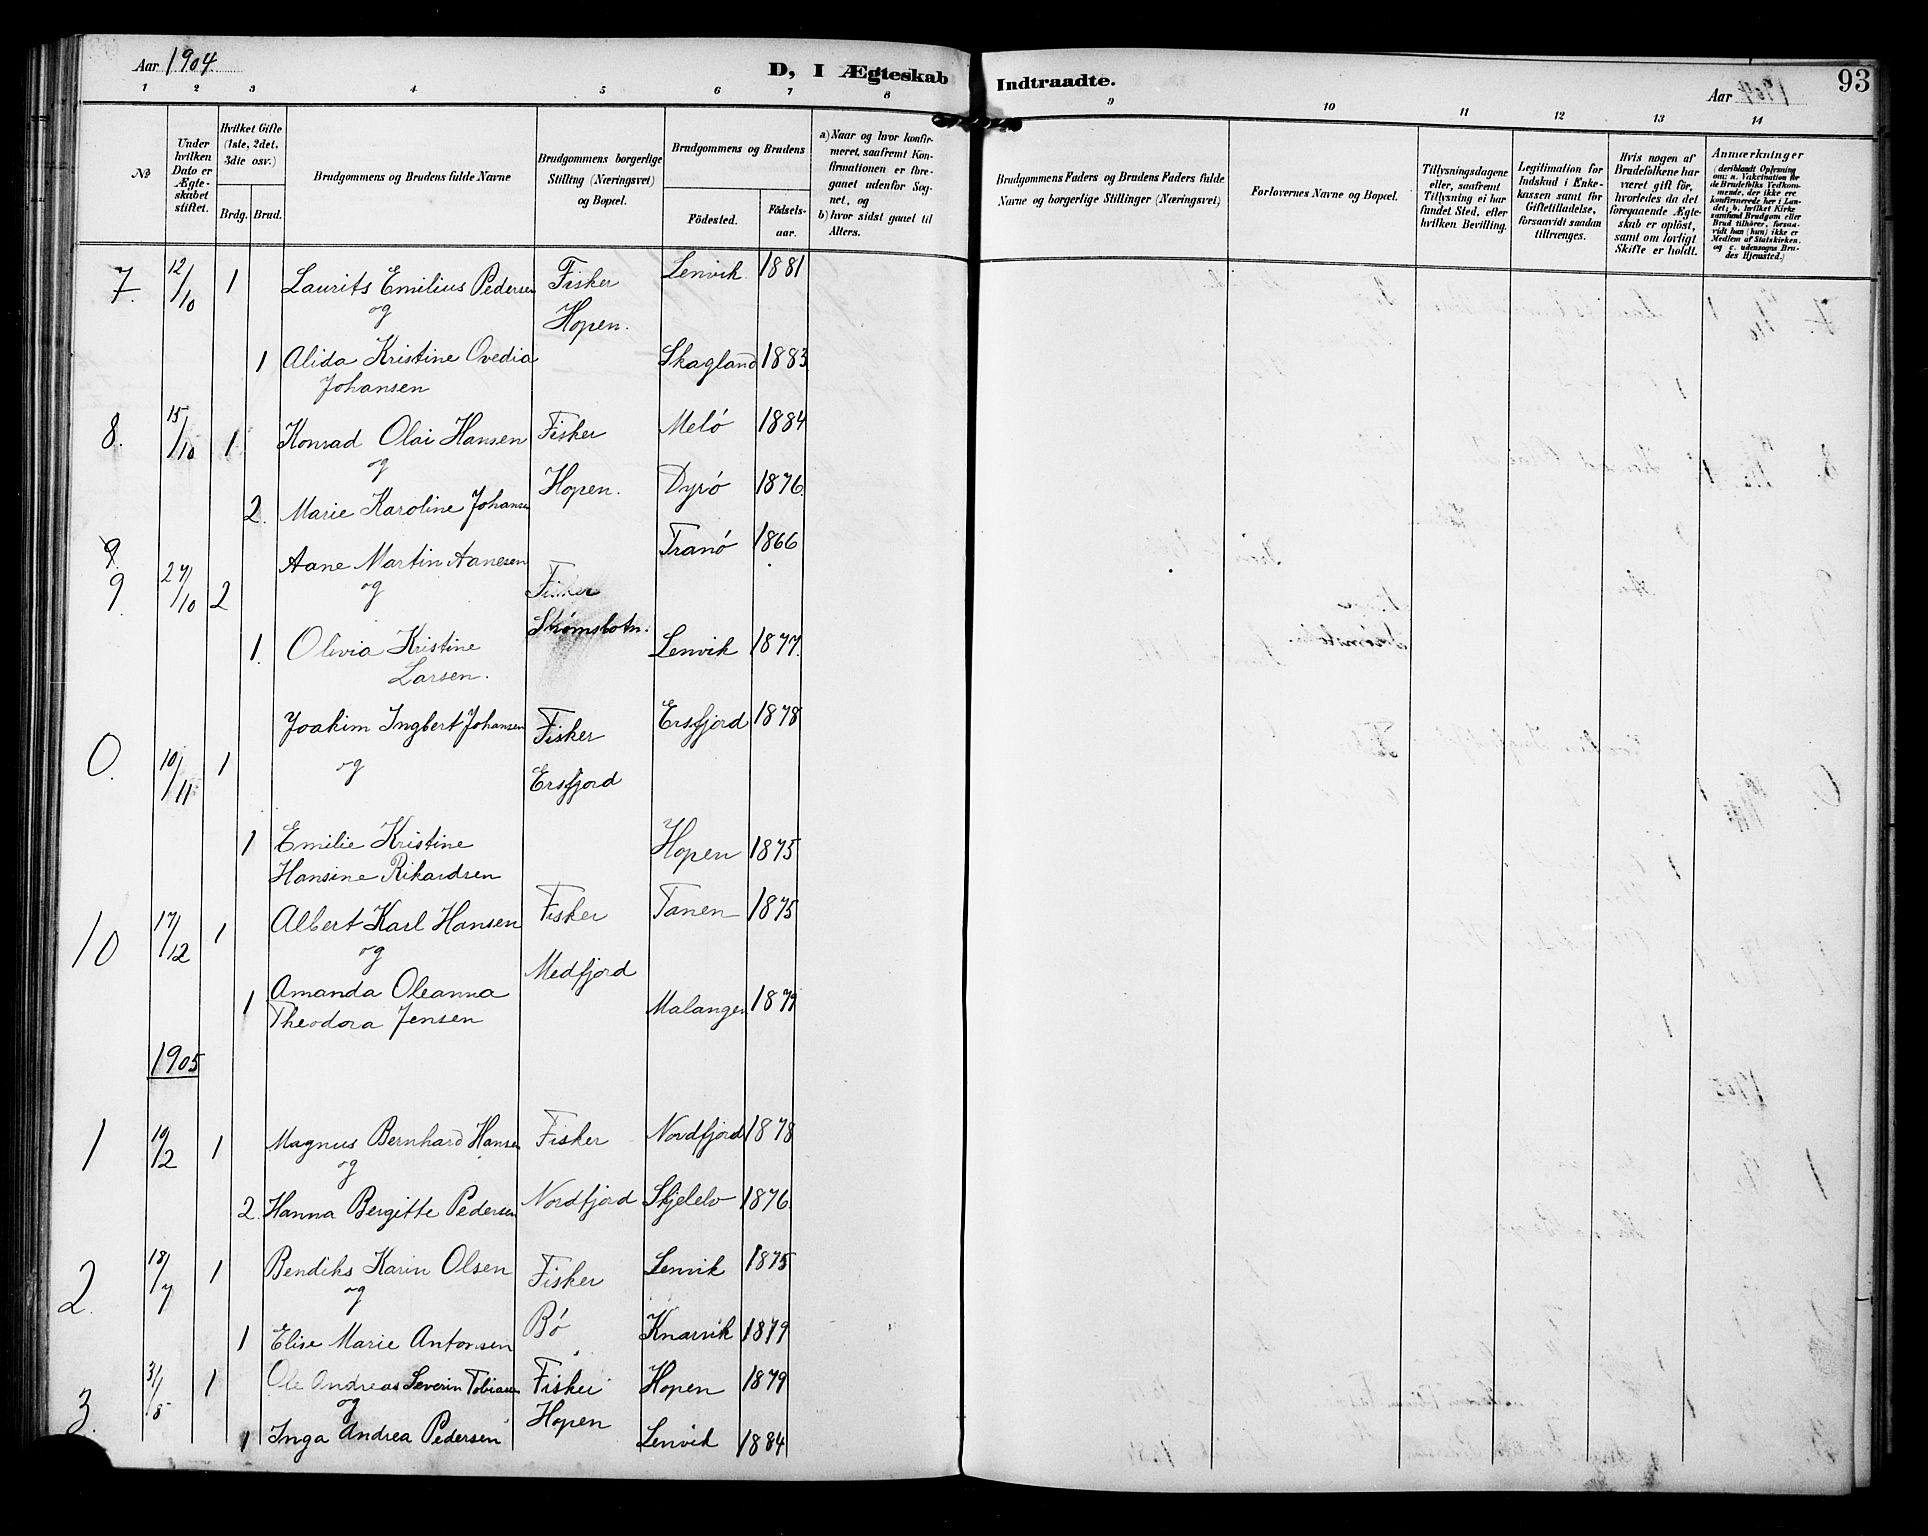 Aar 1904
D, I Ægteskab Indtraadte.
Aar 1904
93
1 2 3 4 5 6 7 8 9 10 11 12 13 14
No
Under hvilken Dato er Ægteskabet stiftet.
Hvilket Gifte (1ste, 2det, 3die osv.)
Brdg. Brud.
Brudgommens og Brudens fulde Navne
Brudgommens borgerlige Stilling (Næringsvei) og Bopæl.
Brudgommens og Brudens
Fødested. Fødselsaar.
a) Naar og hvor konfirmeret, saafremt Konfirmationen er foregaaet udenfor Sognet, og
b) hvor sidst gaaet til Alters.
Brudgommens Faders og Brudens Faders fulde Navne og borgerlige Stillinger (Næringsvei)
Forlovernes Navne og Bopæl.
Tillysningsdagene eller, saafremt Tillysning ei har fundet Sted, efter hvilken Bevilling.
Legitimation for Indskud i Enkekassen samt for Giftetilladelse, forsaavidt saadan tiltrænges.
Hvis nogen af Brudefolkene har været gift før, hvorledes da det foregaaende Ægteskab er opløst, samt om lovligt Skifte er holdt.
Anmærkninger
(deriblandt Oplysning om: a. Vakcination for de Brudefolks Vedkommende, der ikke ere konfirmerede her i Landet; b. hvilket Kirkesamfund Brudgom eller Brud tilhører, forsaavidt han (hun) ikke er Medlem af Statskirken, og c. udensogns Brudes Hjemsted.)
7. 12/10 1 Laurits Emilius Pedersen Fisker Lenvik 1881
og Hopen.
1 Alida Kristine Ovedia Skagland 1883
Johansen
8. 15/10 1 Konrad Olai Hansen Fisker Melö 1884
og
2. Marie Karoline Johansen Hopen. Dyrö 1876.
9.
9 27/10 2 Aane Martin Aanesen Fisker Tranö 1866
og Strömsbotn.
1. Olivia Kristine Lenvik 1877.
Larsen.
0. 10/11 1 Joakim Ingbert Johansen Fisker Ersfjord 1878
og Ersfjord
1 Emilie Kristine Hopen 1875
Hansine Rikardsen
10 17/12 1 Albert Karl Hansen Fisker Tanen 1875
og Medfjord
1 Amanda Oleanna Malangen 1879
Theodora Jensen
1905
1 19/2 1 Magnus Bernhard Hansen Fisker Nordfjord 1878
og
2. Hanna Bergitte Pedersen Nordfjord Skjelelv 1876.
2. 18/7 1 Bendiks Karin Olsen Fisker Lenvik 1875
og
1 Elise Marie Antonsen Bö Knarvik 1879
3. 31/8 1 Ole Andreas Severin Tobiasen Fisker Hopen 1879
og Hopen
1 Inga Andrea Pedersen Lenvik 1884